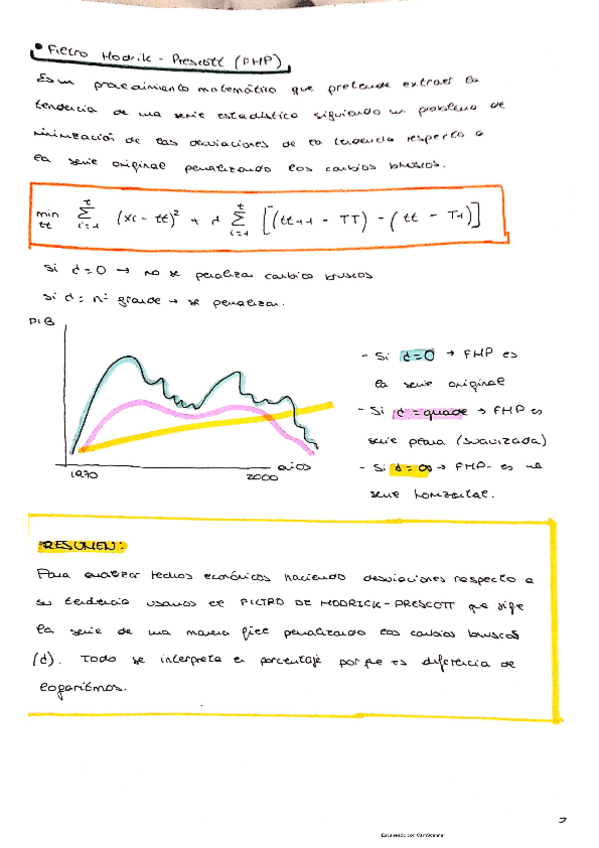 • Filtro Hodrik - Prescott (FHP)
Es un procedimiento matemático que pretende extraer la
tendencia de una serie estadística siguiendo un problema de
minimización de las desviaciones de la tendencia respecto a
la serie original penalizando los cambios bruscos.
min tt t Σ i=1 (xi - tt)² + d t Σ i=1 [(tt+1 - TT) - (tt - T-1)]
Si d=0 → no se penalizan cambios bruscos
Si d= nº grande → se penalizan.
PIB
- Si d=0 → FHP es
la serie original
- Si d=grande → FHP es
serie plana (suavizada)
- Si d=∞ → FHP- es una
serie horizontal.
años
1970
2000
RESUMEN:
Para analizar hechos económicos haciendo desviaciones respecto a
su tendencia usamos el FILTRO DE HODRICK-PRESCOTT que sige
la serie de una manera fiel penalizando los cambios bruscos
(d). Todo se interpreta en porcentaje porque es diferencia de
logaritmos.
7
Escaneado con CamScanner